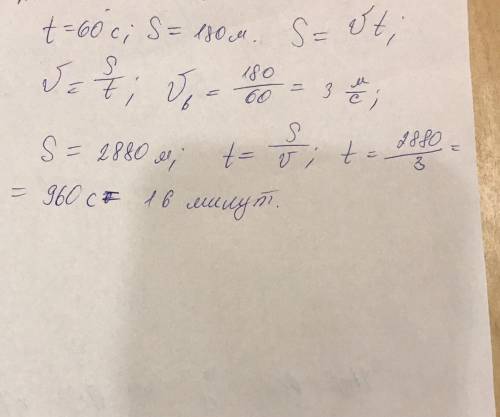 t=60 с; S = 180 м. S = υt;
υ = S/t; υв = 180/60 = 3 м/с;
S = 2880 м; t = S/υ; t = 2880/3 =
= 960 с = 16 минут.